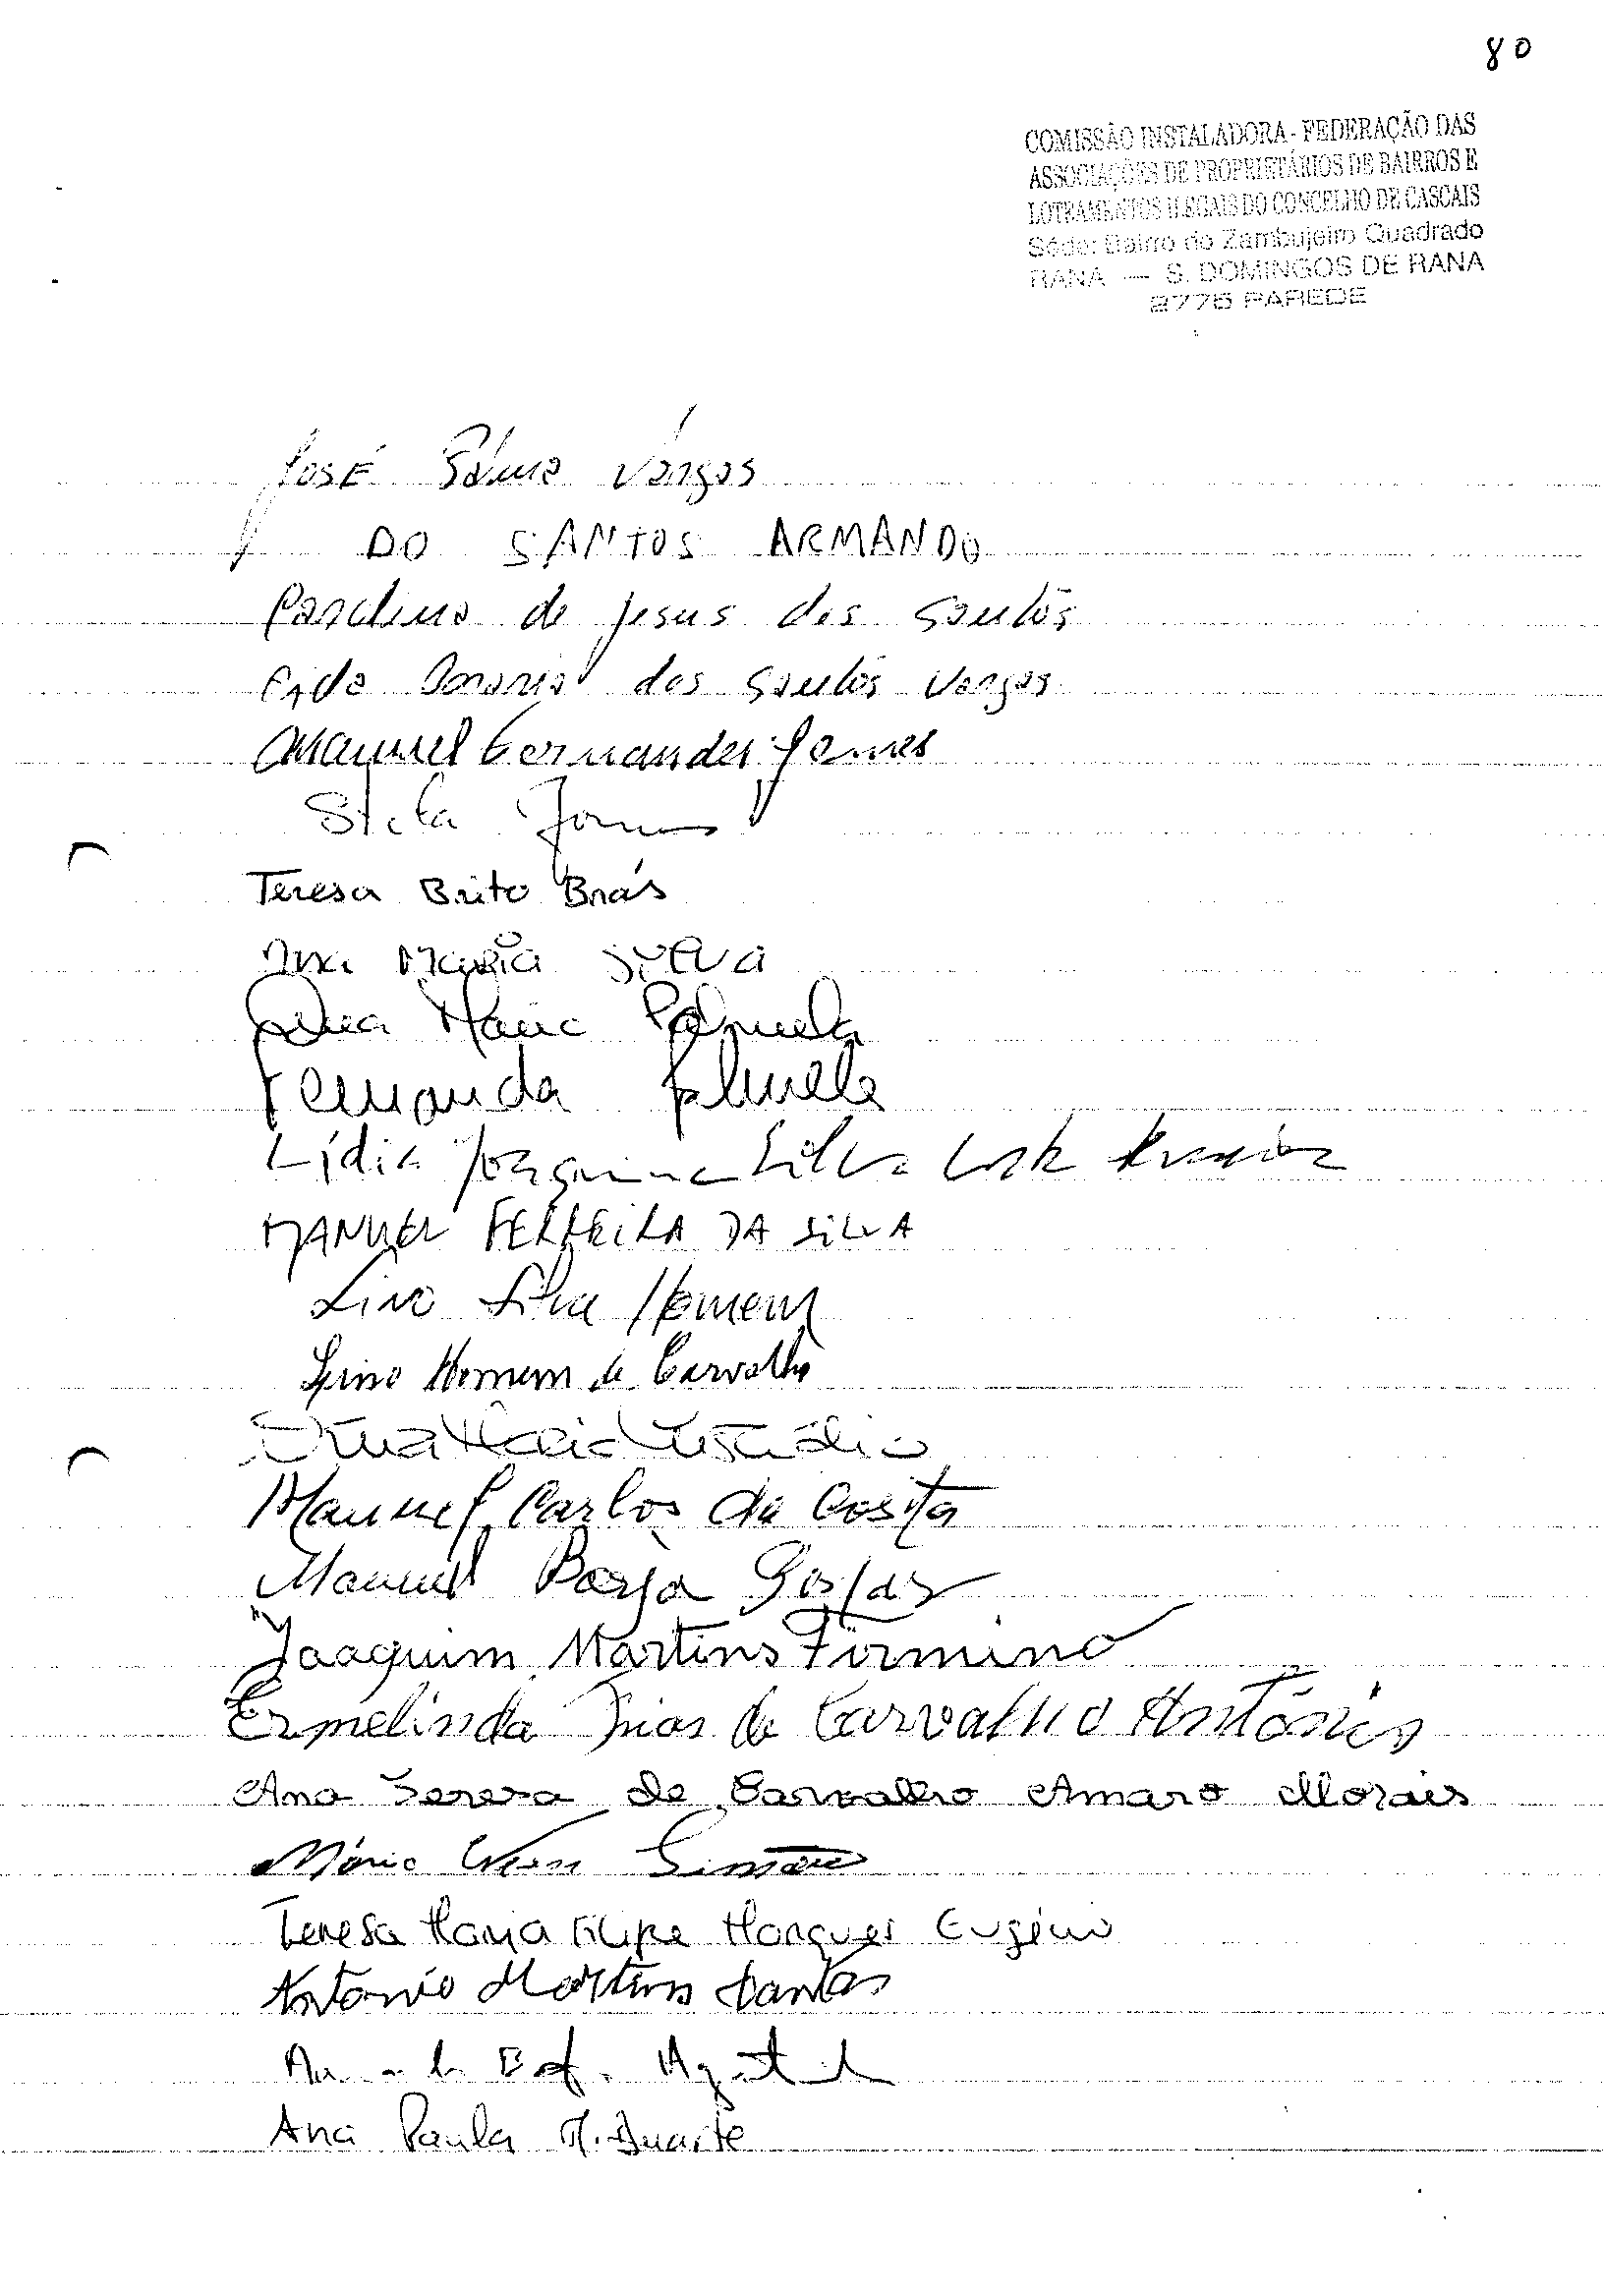 80
COMISSÃO INSTALADORA - FEDERAÇÃO DAS
ASSOCIAÇÕES DE PROPRIETÁRIOS DE BAIRROS E
LOTEAMENTOS ILEGAIS DO CONCELHO DE CASCAIS
Séde: Bairro do Zambujeiro Quadrado
RANA — S. DOMINGOS DE RANA
2775 PAREDE
JOSÉ Vargas
DO SANTOS ARMANDO
de Jesus dos Santos
dos Santos Vargas
Manuel Fernandes Gomes
Stela
Teresa Brito Brás
Ana Maria Silva
Ana Maria Palmela
Fernanda Palmela
Lídia Joaquina Silva
MANUEL FERREIRA DA SILVA
Lino Silva Homem
Homem de Carvalho
Maria
Manuel Carlos da Costa
Manuel
Joaquim Martins Firmino
Ermelinda Dias de Carvalho António
Ana Teresa de Carvalho Amaro Morais
Simões
Teresa Maria Filipe Marques Eugénio
António Martins Dantas
Ana Paula M. Duarte